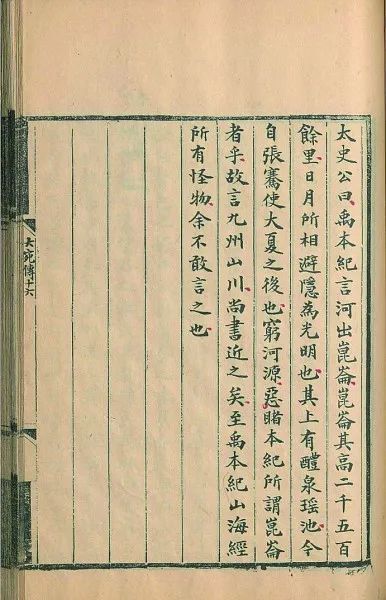 太史公曰禹本紀言河出崑崙崑崙其高二千五百
餘里日月所相避隱為光明也其上有醴泉瑤池今
自張騫使大夏之後也窮河源惡睹本紀所謂崑崙
者乎故言九州山川尚書近之矣至禹本紀山海經
所有怪物余不敢言之也
大宛傳十六